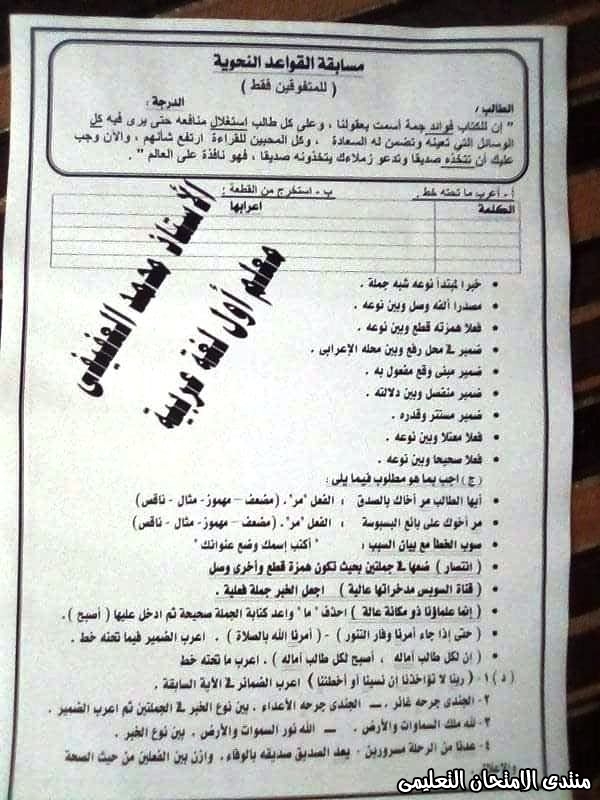 مسابقة القواعد النحوية
( للمتفوقين فقط )
الطالب / الدرجة :
" إن للكتاب فوائد جمة أسمت بعقولنا ، وعلى كل طالب استغلال منافعه حتى يرى فيه كل
الوسائل التي تعينه وتضمن له السعادة ، وكل المحبين للقراءة ارتفع شأنهم ، والآن وجب
عليك أن تتخذه صديقا وتدعو زملاءك يتخذونه صديقا ، فهو نافذة على العالم " .
أ - أعرب ما تحته خط . ب - استخرج من القطعة :
الكلمة اعرابها
خبرا لمبتدأ نوعه شبه جملة .
مصدرا ألفه وصل وبين نوعه .
فعلا همزته قطع وبين نوعه .
ضمير في محل رفع وبين محله الإعرابى .
ضمير مبنى وقع مفعول به .
ضمير منفصل وبين دلالته .
ضمير مستتر وقدره .
فعلا معتلا وبين نوعه .
فعلا صحيحا وبين نوعه .
( ج ) اجب بما هو مطلوب فيما يلى :
أيها الطالب مر أخاك بالصدق ، الفعل "مر" . (مضعف – مهموز- مثال - ناقص)
مر أخوك على بائع البسبوسة ، الفعل "مر" . (مضعف – مهموز- مثال - ناقص)
صوب الخطأ مع بيان السبب : " أكتب إسمك وضع عنوانك "
( انتسار ) ضعها في جملتين بحيث تكون همزة قطع وأخرى وصل
( قناة السويس مدخراتها عالية ) اجعل الخبر جملة فعلية .
( إنما علماؤنا ذو مكانة عالة ) احذف " ما" واعد كتابة الجملة صحيحة ثم ادخل عليها ( أصبح ) .
( حتى إذا جاء أمرنا وفار التنور ) - ( أمرنا الله بالصلاة ) . اعرب الضمير فيما تحته خط .
( إن لكل طالب أماله ، أصبح لكل طالب أماله ) . اعرب ما تحته خط
( د ) ١- ( ربنا لا تؤاخذنا إن نسينا أو أخطئنا ) اعرب الضمائر في الآية السابقة .
٢- الجندى جرحه غائر . ـــ الجندى جرحه الأعداء . بين نوع الخبر في الجملتين ثم اعرب الضمير .
٣- لله ملك السماوات والأرض . ـــ الله نور السموات والأرض . بين نوع الخبر .
٤- عدنا من الرحلة مسرورين - يعد الصديق صديقه بالوفاء . وازن بين الفعلين من حيث الصحة
والإعلال
الأستاذ محمد العفيفى
معلم أول لغة عربية
منتدى الامتحان التعليمى